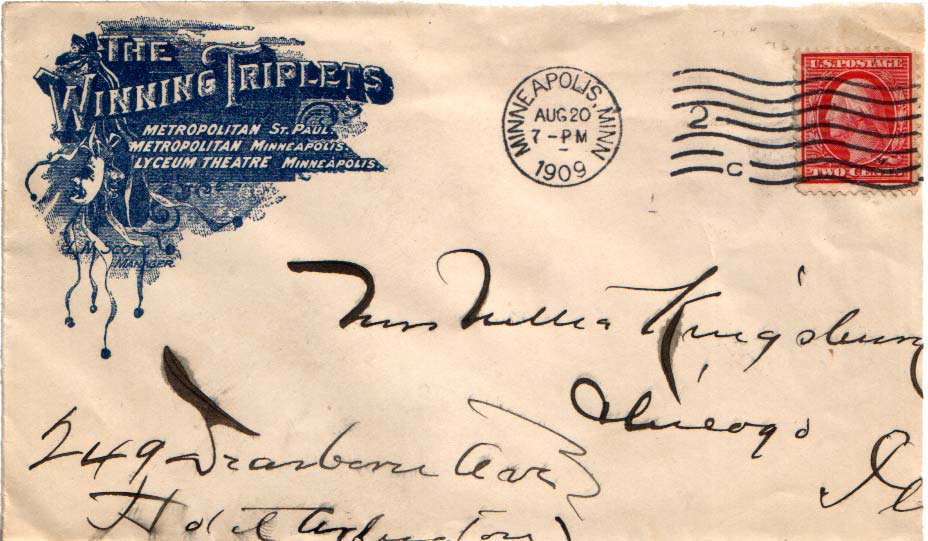 THE
WINNING TRIPLETS
METROPOLITAN ST. PAUL.
METROPOLITAN MINNEAPOLIS.
LYCEUM THEATRE MINNEAPOLIS.
L.M. SCOTT
MANAGER
MINNEAPOLIS, MINN
AUG 20
7-PM
1909
2
C
U.S. POSTAGE
TWO CENTS
Mrs Nellie Kingsbury
Chicago
Ill
249 Dearborn Ave
Hotel Arlington